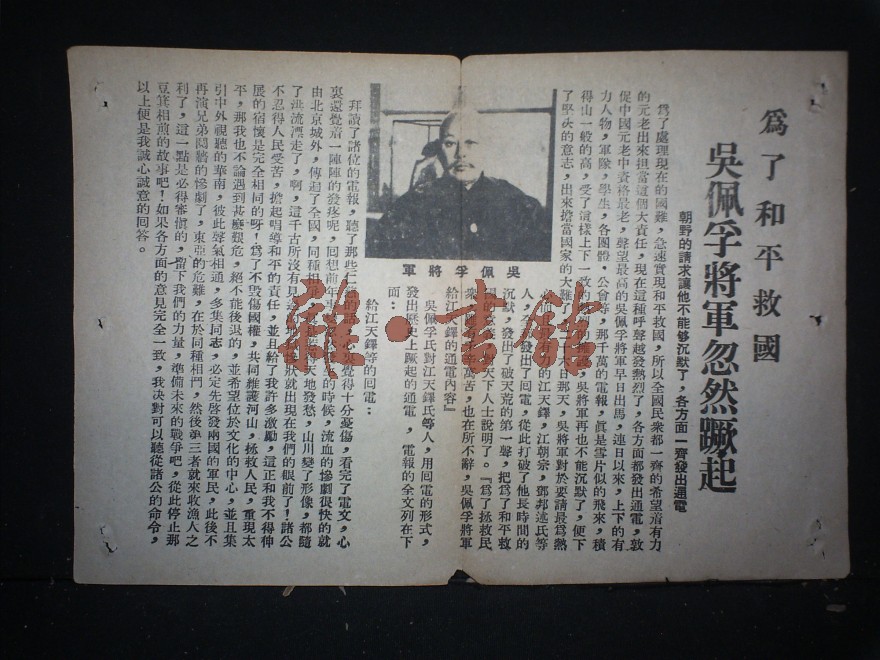 為了和平救國
吳佩孚將軍忽然蹶起
朝野的請求讓他不能夠沉默了，各方面一齊發出通電
為了處理現在的國難，急速實現和平救國，所以全國民衆都一齊的希望着有力
的元老出來担當這個大責任，現在這種呼聲越發熱烈了，各方面都發出通電，敦
促中國元老中資格最老，聲望最高的吳佩孚將軍早日出馬，連日以來，上下的有
力人物，軍隊，學生，各團體，公會等，那千萬的電報，眞是雪片似的飛來，積
得山一般的高，受了這樣上下一致的 吳將軍再也不能沉默了，便下
了堅决的意志，出來擔當國家的大難了 十六日那天，吳將軍對於要請最為熱
的江天鐸，江朝宗，鄧邦述氏等
人， 發出了回電，從此打破了他長時間的
沉默，發出了破天荒的第一聲，把為了和平救
國的意義 天下人士說明了。『為了拯救民
衆 辛萬苦，也在所不辭，吳佩孚將軍
給江天鐸的通電內容』
吳佩孚氏對江天鐸氏等人，用回電的形式，
發出歷史上蹶起的通電，電報的全文列在下
面：
吳佩孚將軍
給江天鐸等的回電：
拜讀了諸位的電報，聽了那些仁 覺得十分憂傷，看完了電文，心
裏還覺着一陣陣的發疼呢，回想前年事 的時候，流血的慘劇很快的就
由北京城外，傳遍了全國，同種相 天地發愁，山川變了形像，都隨
了洪流漂走了，啊，這千古所沒有見 地 慘狀就出現在我們的眼前了！諸公
不忍得人民受苦，擔起唱導和平的責任，並且給了我許多激勵，這正和我不得伸
展的宿懷是完全相同的呀！為了不毀傷國權，共同維護河山，拯救人民，重現太
平，那我也不論遇到甚麼艱危，絕不能後退的，並希望位於文化的中心，並且集
引中外視聽的華南，彼此聲氣相通，多集同志，必定先啓發兩國的軍民，此後不
再演兄弟鬩牆的慘劇了，東亞的危難，在於同種相鬥，然後第三者就來收漁人之
利了，這一點是必得審慎的，留下我們的力量，準備未來的戰爭吧，從此停止那
豆箕相煎的故事吧！如果各方面的意見完全一致，我决對可以聽從諸公的命令，
以上便是我誠心誠意的回答。
雜·書館